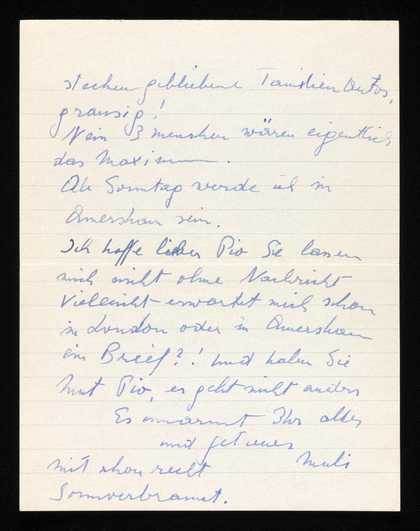 stecken gebliebene Familien Autos,
grausig!
Nein 3 menschen wären eigentlich
das Maximum.
Ab Sonntag werde ich in
Amersham sein.
Ich hoffe lieber Pio Sie lassen
mich nicht ohne Nachricht
Vielleicht erwartet mich schon
in London oder in Amersham
ein Brief?! und haben Sie
Mut Pio, es geht nicht anders
Es umarmt Ihr altes
und getreues
Muli
mit schon recht
Sonnverbrannt.